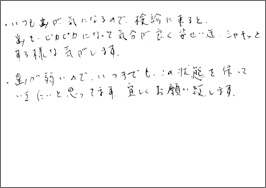 ・いつも歯が気になるので、検診に来ると、
歯も、ピカピカになって気分が良く幸せい遠、シャキッと
する様な気がします。
・歯が弱いので、いつまでも、この状態を保って
いきたいと思ってます 宜しくお願い致します。